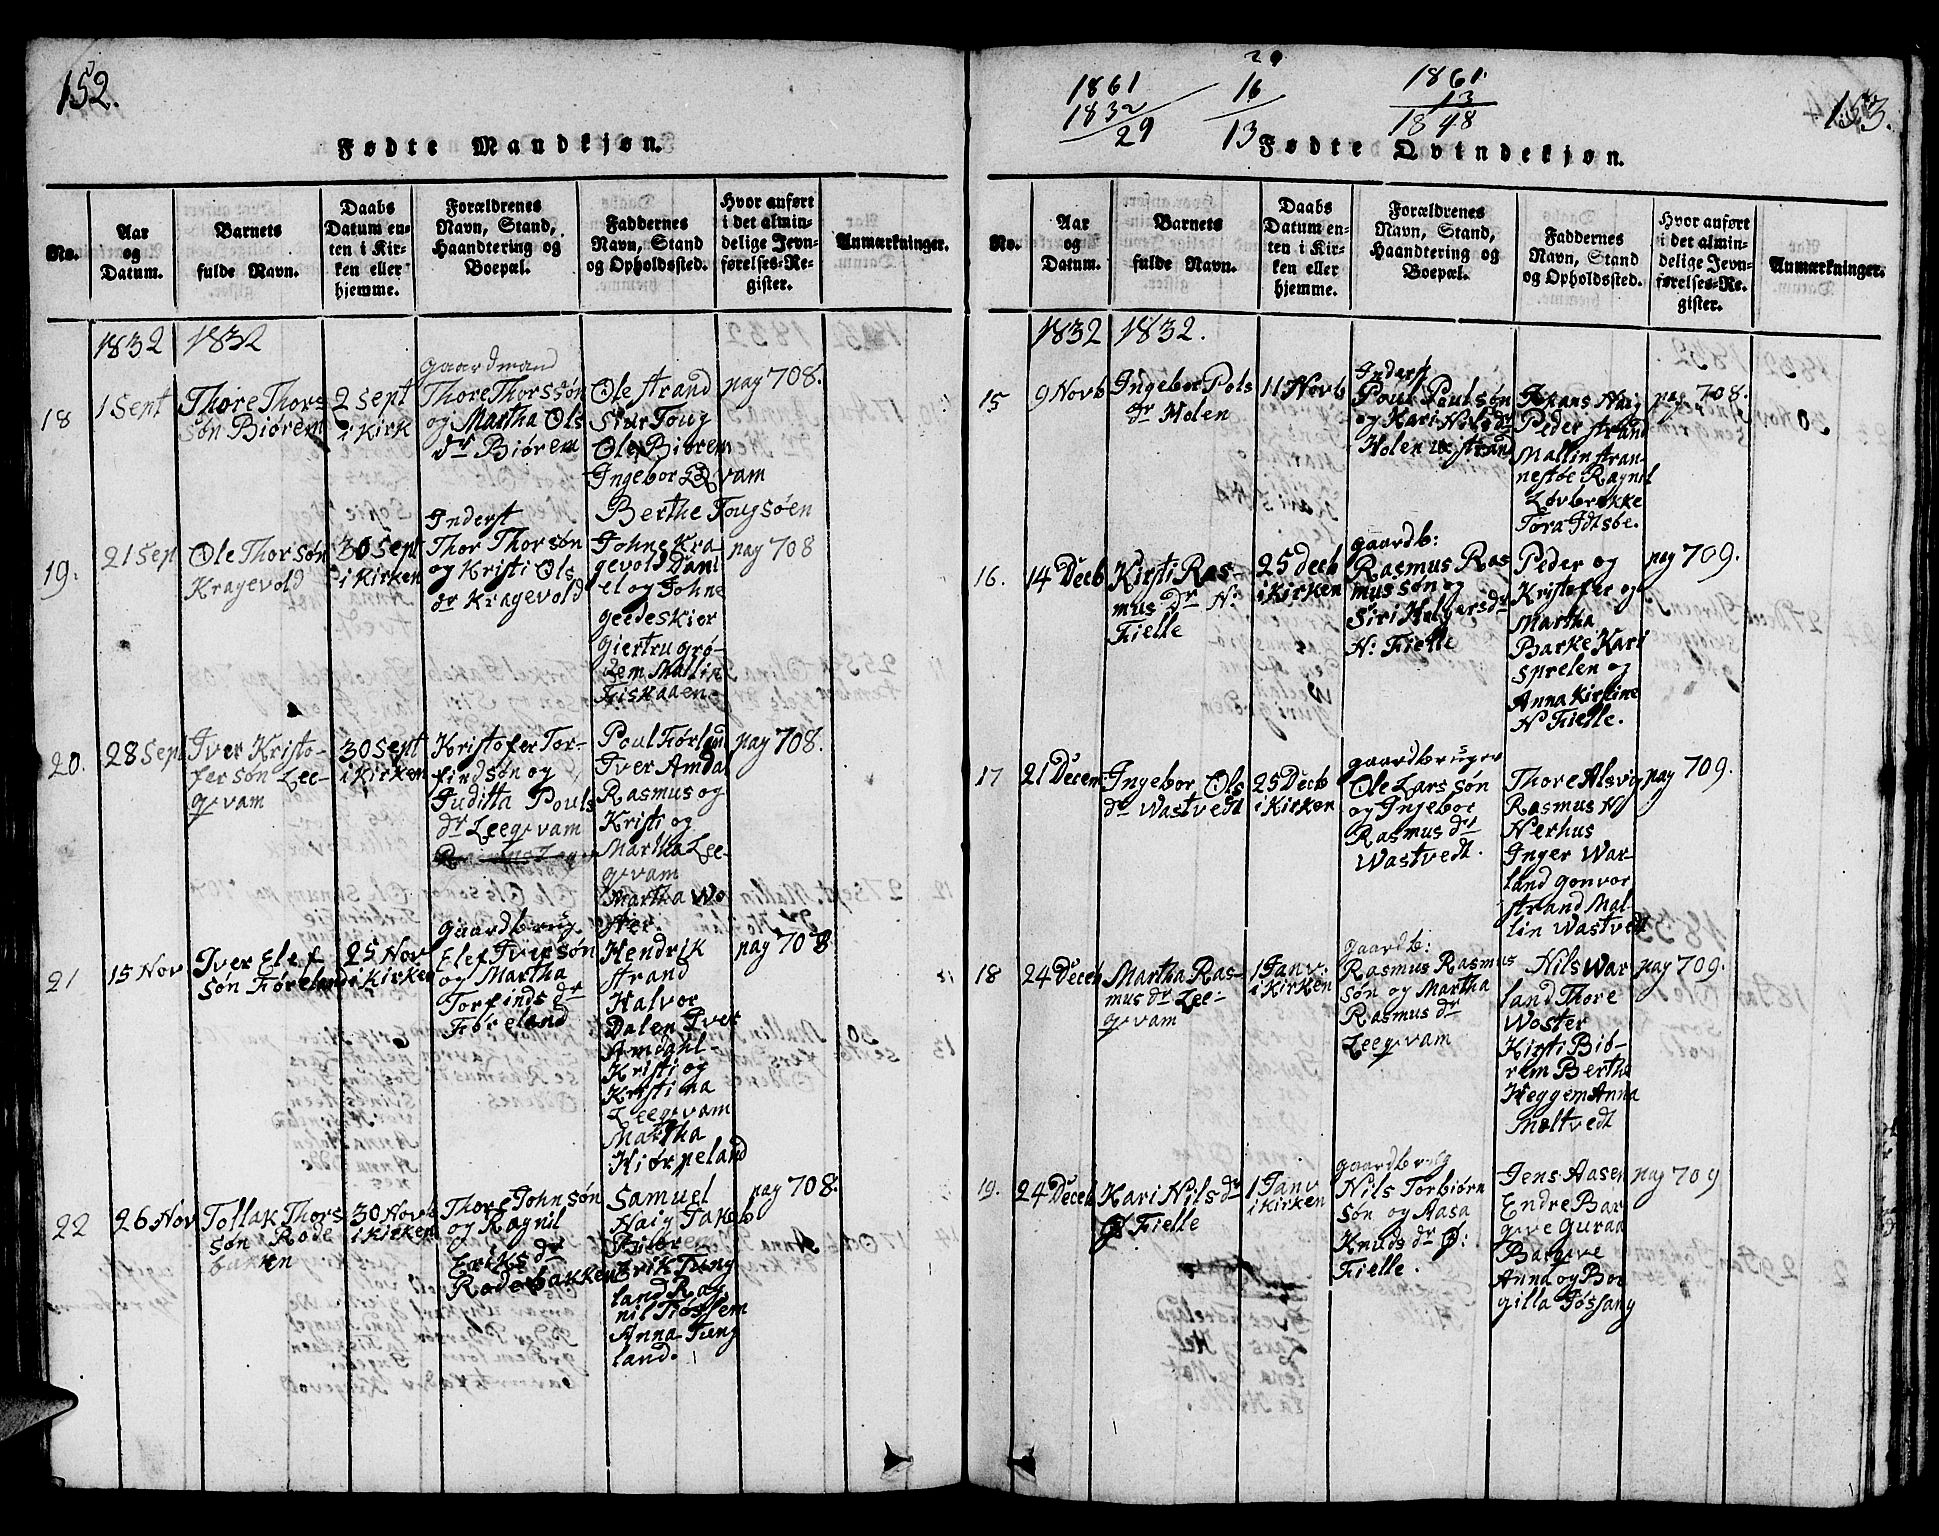 152.
Fødte Mandkjøn.
No.
Aar
og
Datum.
Barnets
fulde Navn.
Daabs
Datum en-
ten i Kir-
ken eller
hjemme.
Forældrenes
Navn, Stand,
Haandtering og
Boepæl.
Faddernes
Navn, Stand
og Opholdssted.
Hvor anført
i det almin-
delige Jevn-
førelses-Re-
gister.
Anmærkninger.
1832
1832
18
1 Sept
Thore Thors
søn Biørem
2 Sept
i Kirk
Gaardmand
Thore Thorssøn
og Martha Ols
dr Biørem
Ole Strand
Siur Toug
Ole Biørem
Ingebor Qvam
Berthe Tougsøen
pag 708.
19.
21 Sep
Ole Thorsøn
Kragevold
30 Sept
i Kirken
Inderst
Thor Thorsøn
og Kristi Ols
dr Kragevold
Johne Kra-
gevold Dani
el og Johne
geedeskier
giertru grø-
dem Mallin
Fiskaaen
pag 708
20.
28 Sept
Iver Kristo-
fersøn Lee-
qvam
30 Sept
i Kirken
Kristofer Tor-
findsøn og
Juditta Pouls
dr Leeqvam
Poul Førland
Iver Amdal
Rasmus og
Kristi og
Martha Lee-
qvam
Martha Wo
ster.
pag 708.
21
15 Nov
Iver Elef
søn Føreland
25 Nov
i Kirken
gaardbrug
Elef Iversøn
og Martha
Torfinds dr
Føreland
Hendrik
Strand
Halvor
Dalen Iver
Amdahl
Kristi og
Kristina
Leeqvam
Martha
Hiørpeland
pag 708
22
26 Nov
Tollak Thors
søn Rode
bakken
30 Novb
i Kirken
Thore Johnsøn
og Ragnil
Eriks dr
Rodebakken
Samuel
Haig Jakob
Erik Tung
land Rag
nil Fiøssem
Anna Tung
land.
pag 708.
1861
1832
29
29
16
13
1861
13
1848
153.
Fødte Qvindekjøn.
No.
Aar
og
Datum.
Barnets
fulde Navn.
Daabs
Datum en-
ten i Kir-
ken eller
hjemme.
Forældrenes
Navn, Stand,
Haandtering og
Boepæl.
Faddernes
Navn, Stand
og Opholdssted.
Hvor anført
i det almin-
delige Jevn-
førelses-Re-
gister.
Anmærkninger.
1832
1832.
15
9 Novb
Ingebor Pols
dr Holen
11 Novb
Inderst
Poul Poulsøn
og Kari Nils dr
Holen u Strand
Haig
Peder Strand
Mallin Stran-
nestøe Ragnil
Løvbrekke
Tora Idsøe.
pag 708.
16.
14 Decb
Kirsti Ras
mus dr N:
Fielle
25 Decb
i Kirken
gaardb:
Rasmus Ras
mussøn og
Siri Helgars dr
N: Fielle
Peder og
Kristofer og
Martha
Barke Kari
Sprelen og
Anna Kirstine
N Fielle.
pag 709.
17
21 Decem
Ingebor Ols
dr Wastvedt
25 Decb
i Kirken
gaardbruger
Ole Larssøn
og Ingebor
Rasmus dr
Wastvedt.
Thore Alsvig
Rasmus
Nerhus
Inger War-
land gonvor
Strand Mal-
lin Wastvedt
pag 709.
18
24 Decb
Martha Ras-
mus dr Lee-
qvam
1 Janv.
i Kirken
gaardb:
Rasmus Rasmus
søn og Martha
Rasmus dr
Leeqvam
Nils War
land Thore
Woster
Kirsti Biø-
rem Bertha
Heggem Anna
Mæltvedt
pag 709.
19.
24 Decb
Kari Nils dr
Ø Fielle
1 Janv
i Kirken
gaardbrug
Nils Torbiørn
søn og Aasa
Knuds dr Ø:
Fielle.
Jens Aasen
Endre Bar
gave Guraa
Bargve
Anna og Bor
gilla Fossang
pag 709